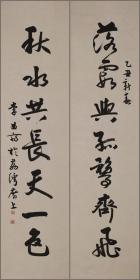 落霞與孤鶩齊飛
乙丑新春
秋水共長天一色